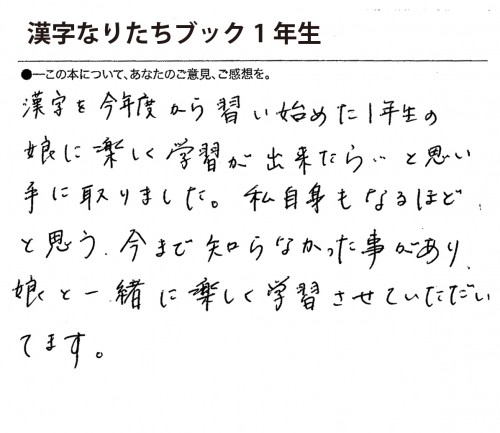 漢字なりたちブック1年生
●―この本について、あなたのご意見、ご感想を。
漢字を今年度から習い始めた1年生の
娘に楽しく学習が出来たら‥と思い
手に取りました。私自身もなるほど、
と思う、今まで知らなかった事があり、
娘と一緒に楽しく学習させていただい
てます。